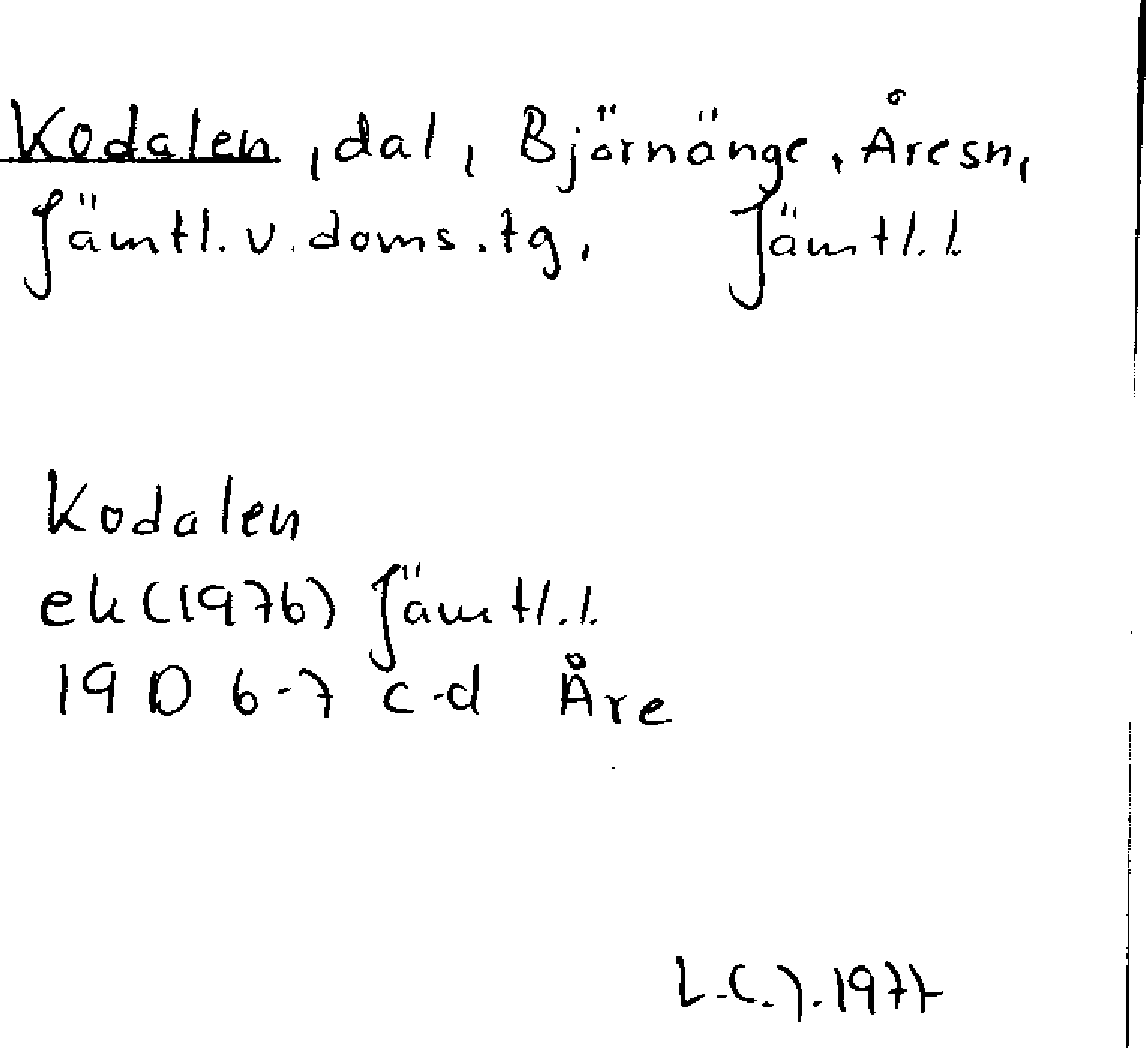 Kodalen, dal, Björnänge, Åre sn,
Jämtl. v. doms. tg, Jämtl. l.
Kodalen
ek (1976) Jämtl. l.
19 D 6-7 c-d Åre
L.C.J. 1977